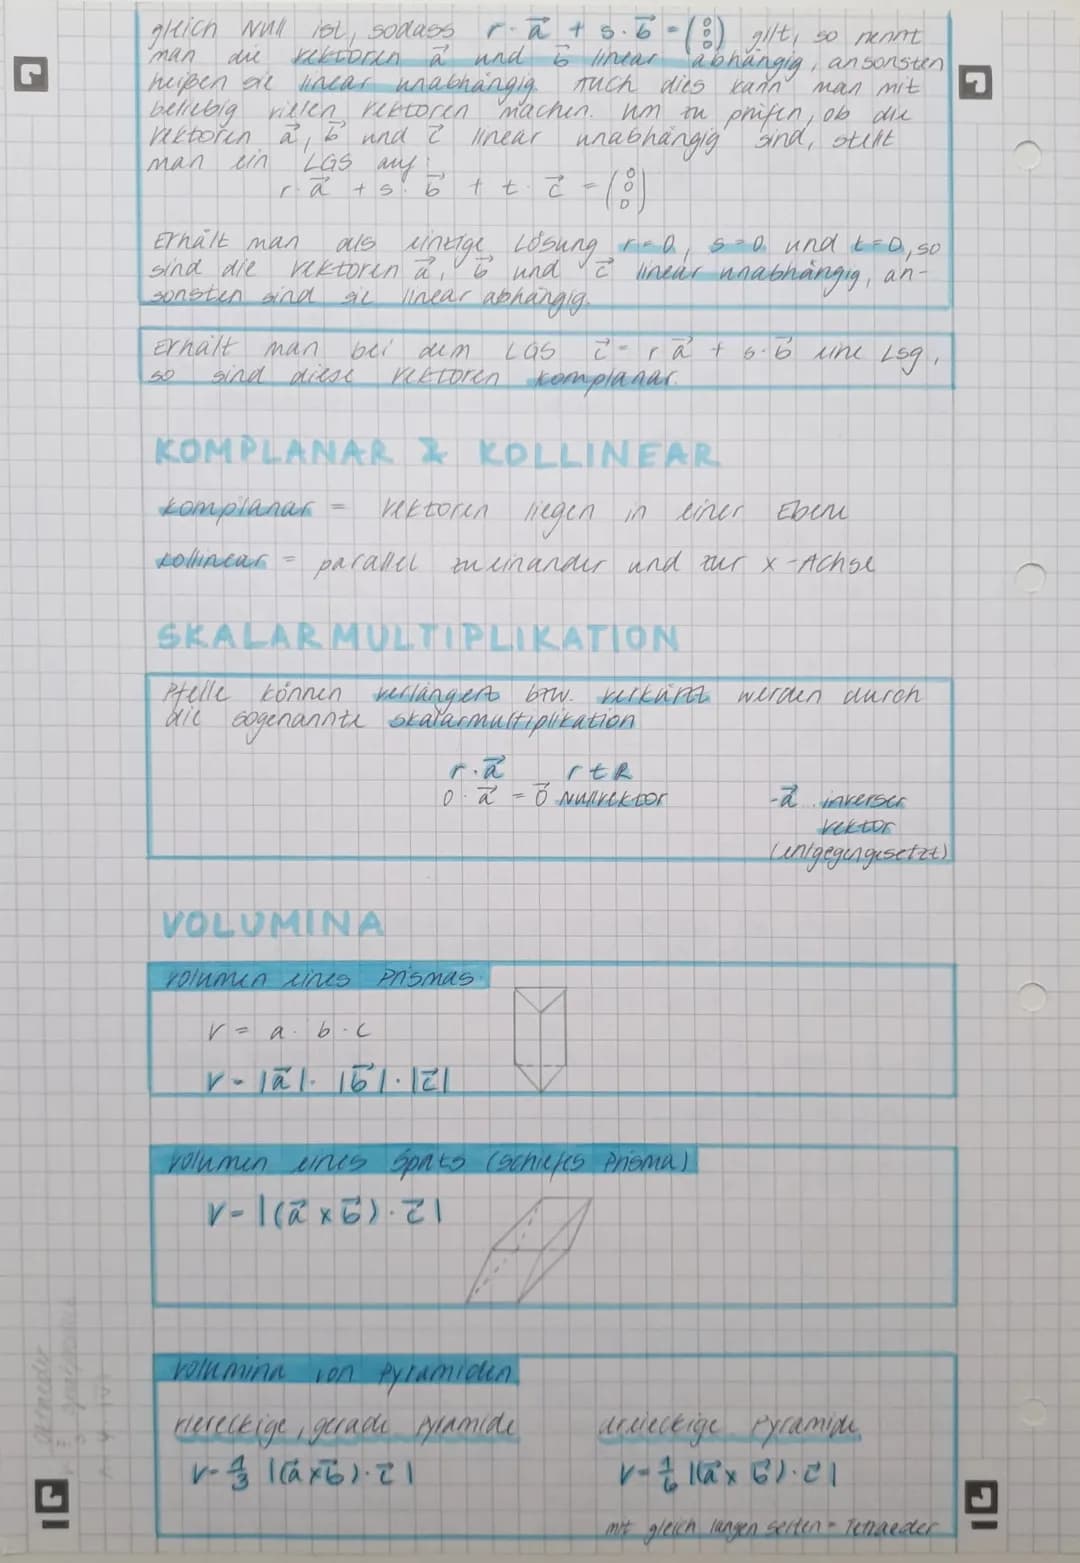 gleich Null ist, sodass r · a⃗ + s · b⃗ = (0 0 0) gilt, so nennt
man die Vektoren a⃗ und b⃗ linear abhängig, ansonsten
heißen sie linear unabhängig. Auch dies kann man mit
beliebig vielen Vektoren machen. Um zu prüfen, ob die
Vektoren a⃗, b⃗ und c⃗ linear unabhängig sind, stellt
man ein LGS auf:
r · a⃗ + s · b⃗ + t · c⃗ = (0 0 0)
Erhält man als einzige Lösung r = 0, s = 0 und t = 0, so
sind die Vektoren a⃗, b⃗ und c⃗ linear unabhängig, an-
sonsten sind sie linear abhängig.
Erhält man bei dem LGS c⃗ = r a⃗ + s · b⃗ eine Lsg,
so sind diese Vektoren komplanar.
KOMPLANAR & KOLLINEAR
komplanar = Vektoren liegen in einer Ebene
kollinear = parallel zueinander und zur x-Achse
SKALARMULTIPLIKATION
Pfeile können verlängert bzw. verkürzt werden durch
die sogenannte Skalarmultiplikation
r · a⃗ r ∈ R
0 · a⃗ = 0⃗ Nullvektor -a⃗ inverser
Vektor
(entgegengesetzt)
VOLUMINA
Volumen eines Prismas
V = a · b · c
V = |a⃗| · |b⃗| · |c⃗|
Volumen eines Spats (schiefes Prisma)
V = |(a⃗ x b⃗) · c⃗|
Volumina von Pyramiden
viereckige, gerade Pyramide dreieckige Pyramide
V = 1/3 |(a⃗ x b⃗) · c⃗| V = 1/6 |(a⃗ x b⃗) · c⃗|
mit gleich langen Seiten = Tetraeder